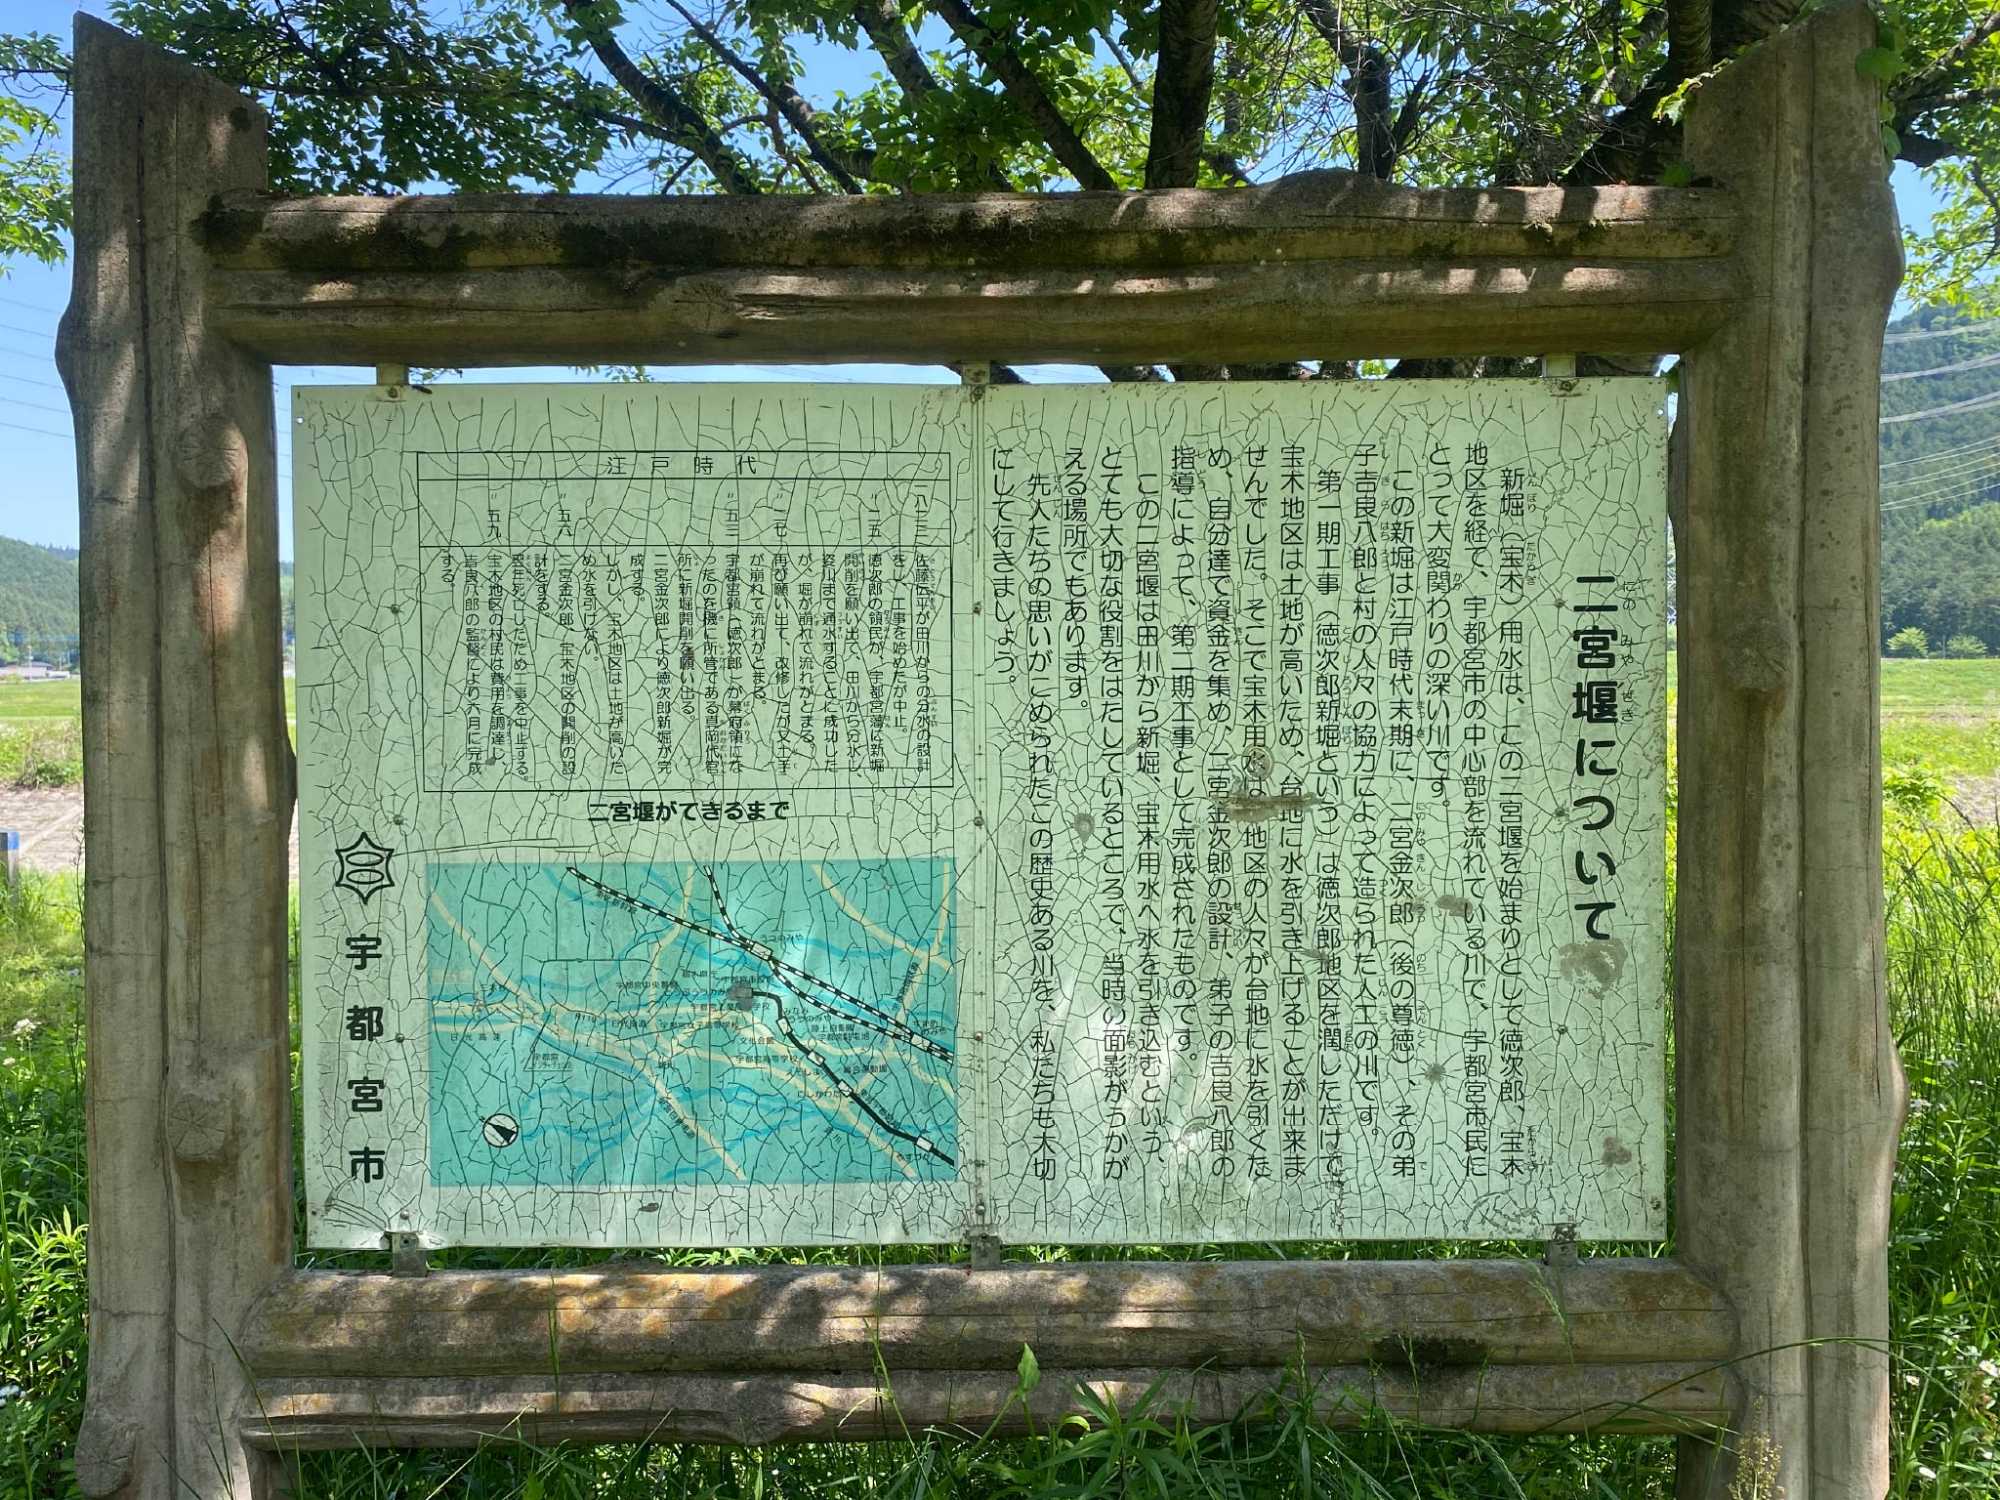 二宮堰について
新堀（宝木）用水は、この二宮堰を始まりとして徳次郎、宝木
地区を経て、宇都宮市の中心部を流れている川で、宇都宮市民に
とって大変関わりの深い川です。
この新堀は江戸時代末期に、二宮金次郎（後の尊徳）、その弟
子吉良八郎と村の人々の協力によって造られた人工の川です。
第一期工事（徳次郎新堀という）は徳次郎地区を潤しただけで
宝木地区は土地が高いため、台地に水を引き上げることが出来ま
せんでした。そこで宝木用水は地区の人々が台地に水を引くた
め、自分達で資金を集め、二宮金次郎の設計、弟子の吉良八郎の
指導によって、第二期工事として完成されたものです。
この二宮堰は田川から新堀、宝木用水へ水を引き込むという、
とても大切な役割をはたしているところで、当時い面影がうかが
える場所でもあります。
先人たちの思いがこめられたこの歴史ある川を、私たちも大切
にして行きましょう。
江戸時代
佐藤伝平が田川からの分水の設計
をし、工事を始めたが中止。
〃一五
徳次郎の領民が、宇都宮藩に新堀
開削を願い出て、田川から分水し、
姿川まで通水することに成功した
が、堀が崩れて流れがとまる。
〃二七
再び願い出て、改修したが又土手
が崩れて流れがとまる。
〃五二
宇都宮領（徳次郎）が幕府領にな
ったのを機に所管である真岡代官
所に新堀開削を願い出る。
二宮金次郎により徳次郎新堀が完
成する。
しかし、宝木地区は土地が高いた
め水を引けない。
〃五八
二宮金次郎、宝木地区の開削の設
計をする。
翌年死亡しため工事を中止する。
〃五九
宝木地区の村民は費用を調達し
吉良八郎の監督により六月に完成
する。
二宮堰ができるまで
うつのみや
文化会館
宇都宮高等学校
みなみ
うつのみや
にしかわだ
やすづか
宇都宮市